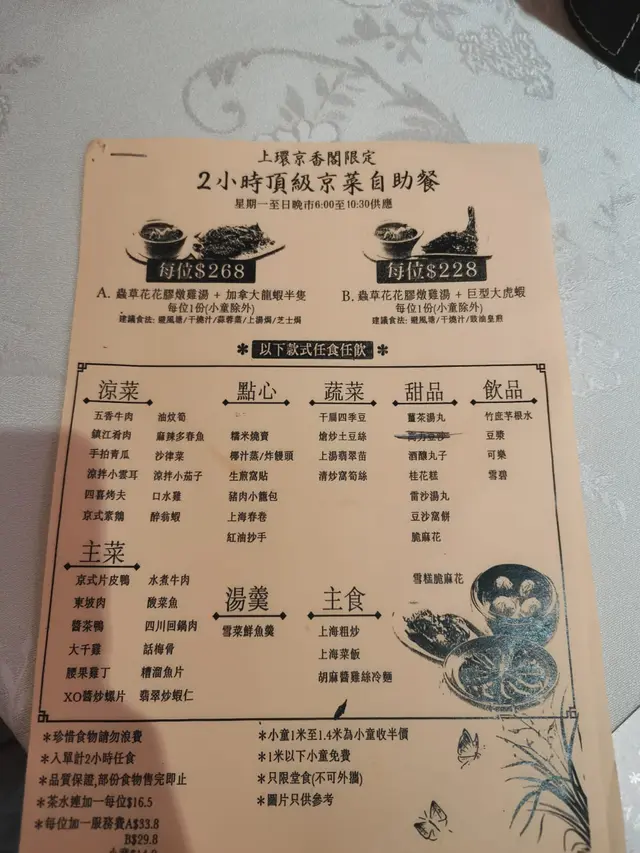 上環京香閣限定
2小時頂級京菜自助餐
星期一至日晚市6:00至10:30供應
每位$268
A. 蟲草花花膠燉雞湯 + 加拿大龍蝦半隻
每位1份(小童除外)
建議食法: 避風塘/干燒汁/蒜蓉蒸/上湯焗/芝士焗
每位$228
B. 蟲草花花膠燉雞湯 + 巨型大虎蝦
每位1份(小童除外)
建議食法: 避風塘/干燒汁/豉油皇煎
* 以下款式任食任飲 *
涼菜
五香牛肉 油炆筍
鎮江肴肉 麻辣多春魚
手拍青瓜 沙律菜
涼拌小雲耳 涼拌小茄子
四喜烤夫 口水雞
京式素鵝 醉翁蝦
點心
糯米燒賣
椰汁蒸/炸饅頭
生煎窩貼
豬肉小籠包
上海春卷
紅油抄手
蔬菜
干扁四季豆
熗炒土豆絲
上湯翡翠苗
清炒窩筍絲
甜品
薑茶湯丸
高力豆沙
酒釀丸子
桂花糕
雷沙湯丸
豆沙窩餅
脆麻花
雪糕脆麻花
飲品
竹庶茅根水
豆漿
可樂
雪碧
主菜
京式片皮鴨 水煮牛肉
東坡肉 酸菜魚
醬茶鴨 四川回鍋肉
大千雞 話梅骨
腰果雞丁 糟溜魚片
XO醬炒螺片 翡翠炒蝦仁
湯羹
雪菜鮮魚羹
主食
上海粗炒
上海菜飯
胡麻醬雞絲冷麵
*珍惜食物請勿浪費
*入單計2小時任食
*品質保證,部份食物售完即止
*茶水連加一每位$16.5
*每位加一服務費A$33.8
B$29.8
*小童1米至1.4米為小童收半價
*1米以下小童免費
*只限堂食(不可外攜)
*圖片只供參考